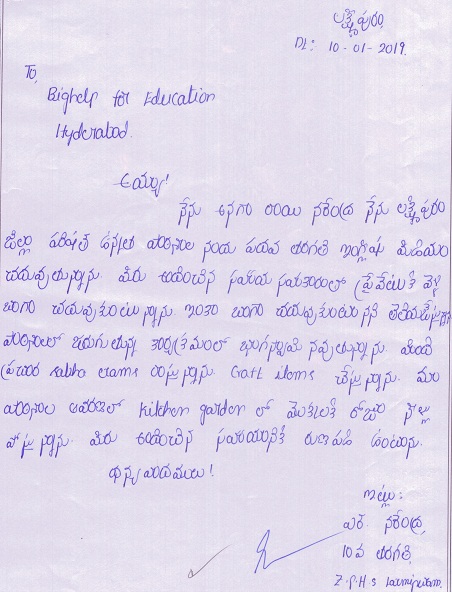 లక్ష్మీపురం,
Dt: 10-01-2019.
To,
Bighelp for Education
Hyderabad.
అయ్యా!
నేను అనగా రాయి నరేంద్ర నేను లక్ష్మీపురం
జిల్లా పరిషత్ ఉన్నత పాఠశాల నందు పదవ తరగతి ఇంగ్లీషు మీడియం
చదువుతున్నాను. మీరు అందించిన సహాయ సహకారంలో ప్రైవేటుకి వెళ్లి
బాగా చదువుకుంటున్నాను. ఇంకా బాగా చదువుకుంటానని తెలియజేస్తున్నాను
పాఠశాలలో జరుగుతున్న కార్యక్రమంలో భాగస్వామి నవుతున్నాను. హిందీ
ప్రచార sabha exams రాస్తున్నాను. Gaft items చేస్తున్నాను. మా
పాఠశాల ఆవరణలో kitchen garden లో మొక్కలకి రోజూ నీళ్లు
పోస్తున్నాను. మీరు అందించిన సహాయానికి రుణపడి ఉంటాను.
ధన్యవాదములు!
ఇట్లు:
ఆర్. నరేంద్ర,
10వ తరగతి,
Z.P.H.S laxmipuram.